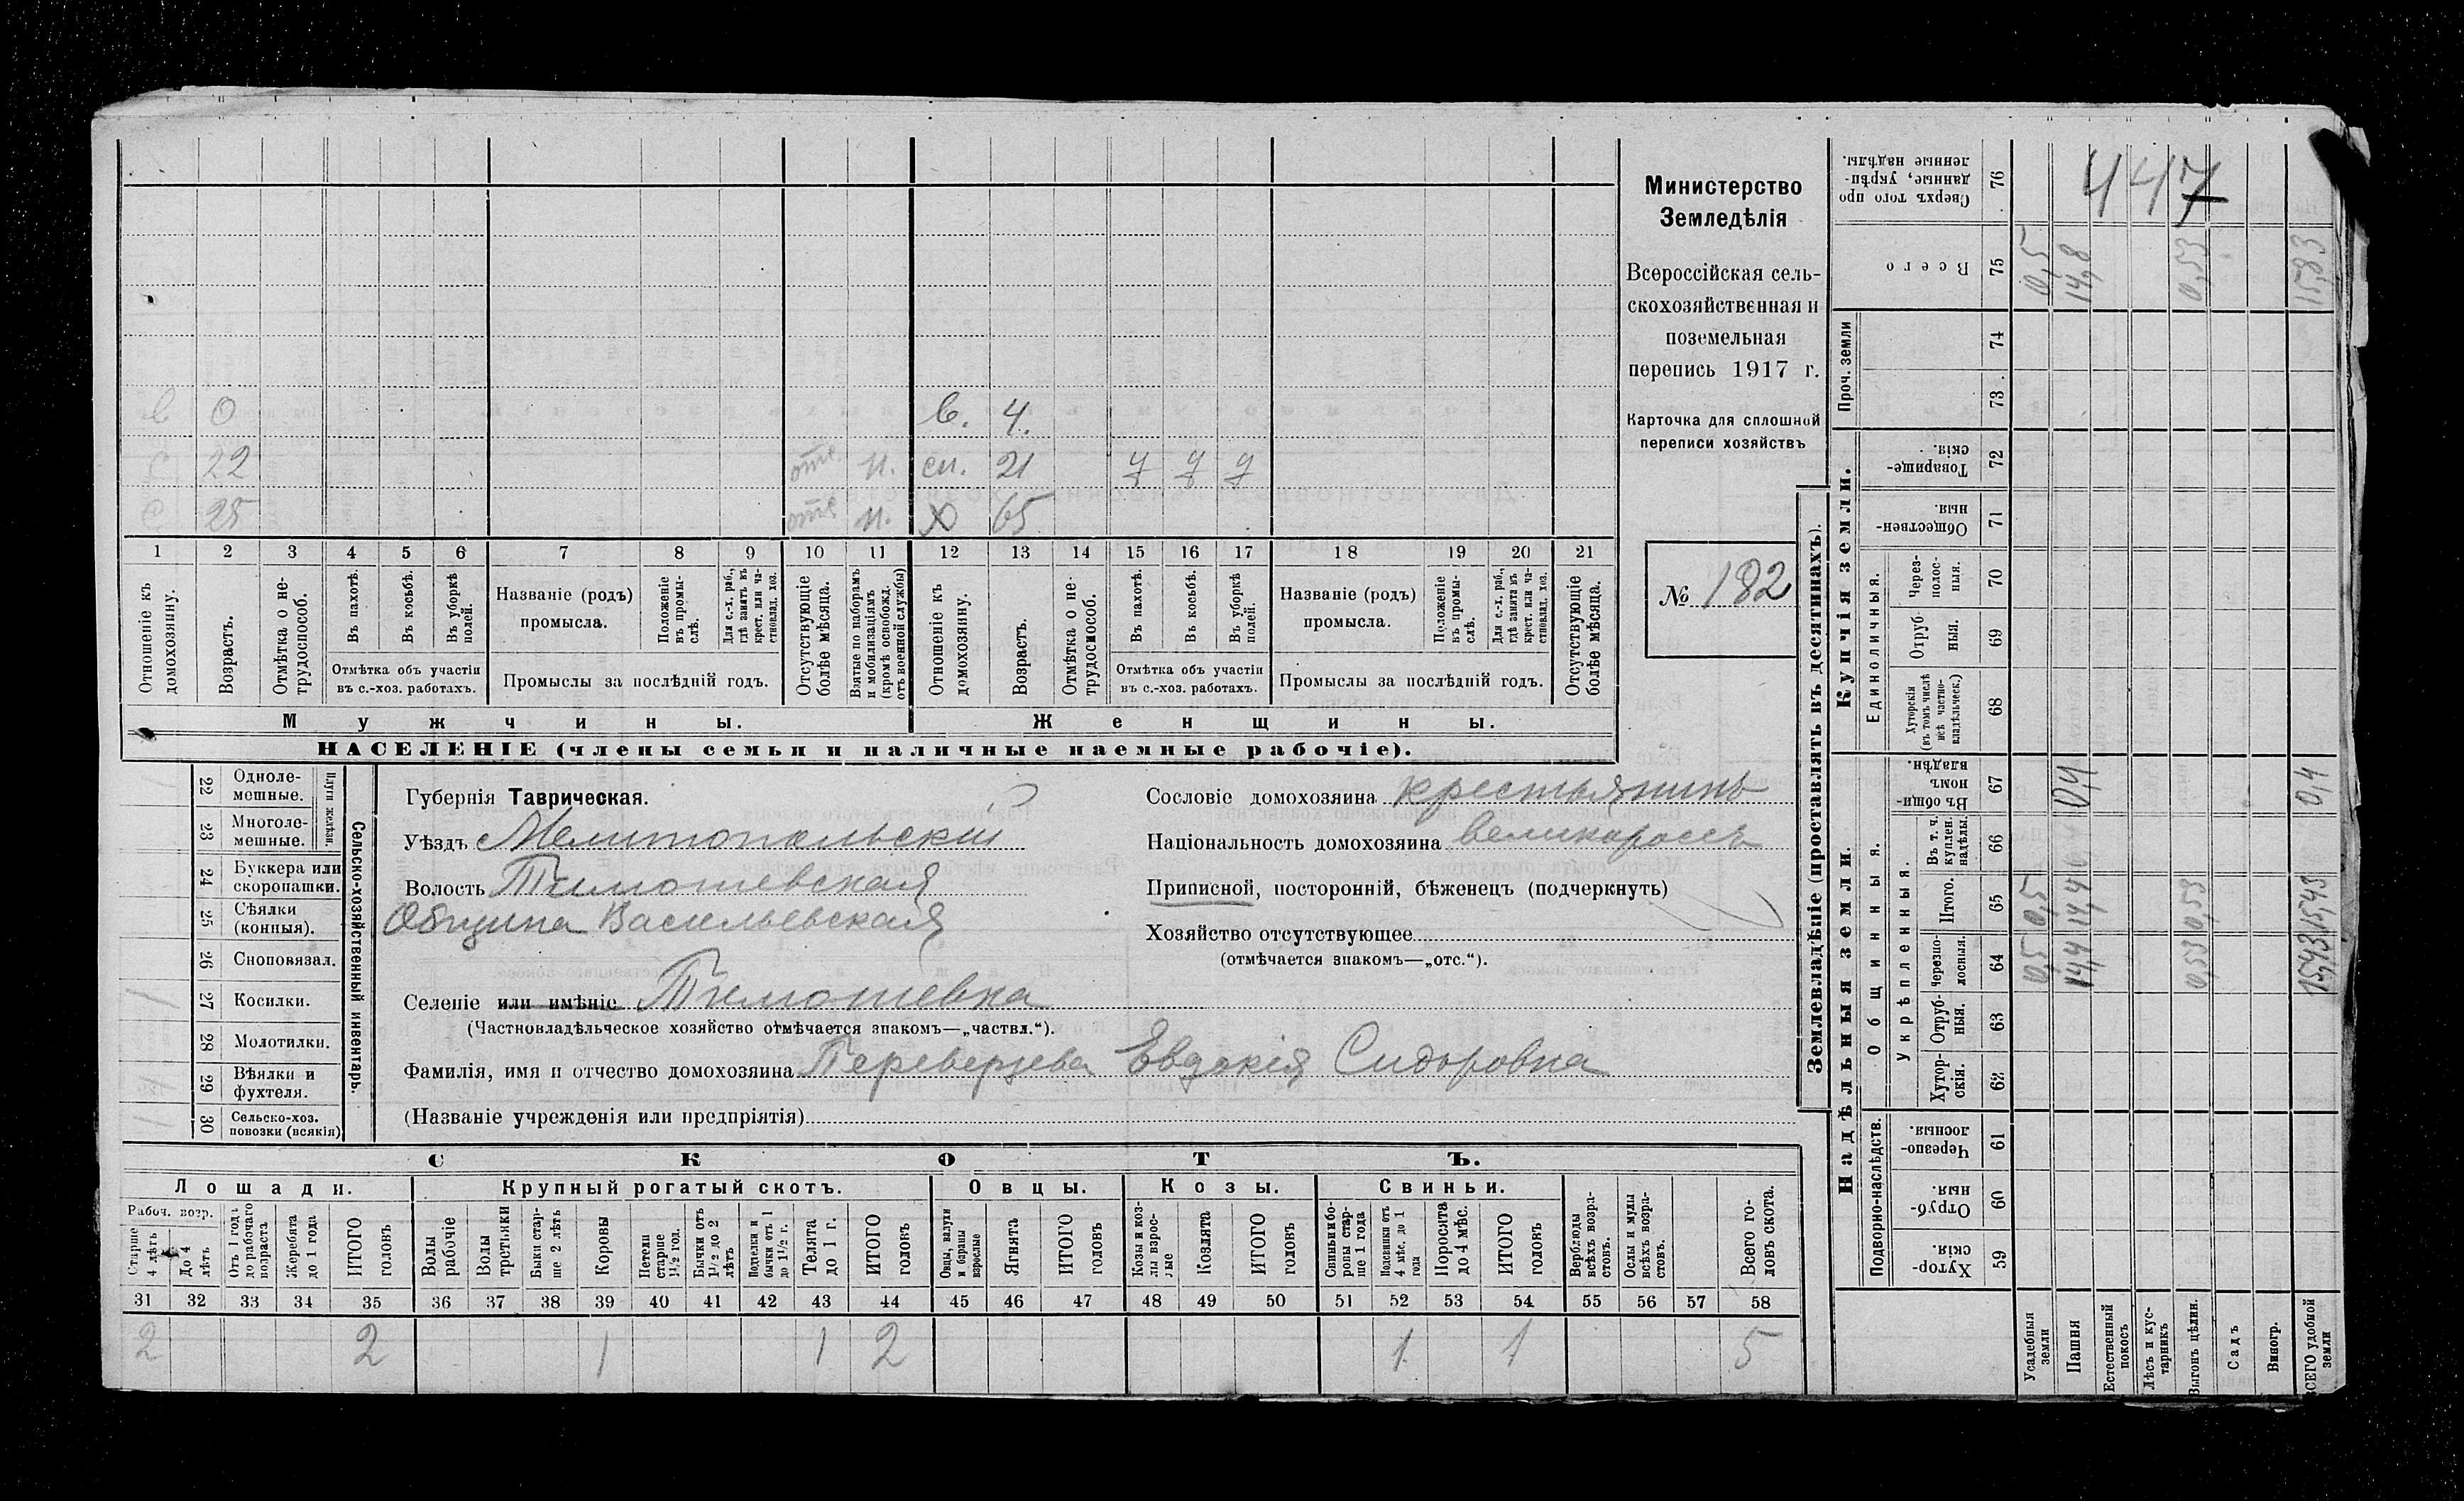 Министерство
Земледѣлія
Всероссійская сель-
скохозяйственная и
поземельная
перепись 1917 г.
Карточка для сплошной
переписи хозяйствъ
№ 182
в 0 в. 4.
с 22 отс. н. сн. 21
с 25 отс н. х 65
1 2 3 4 5 6 7 8 9 10 11 12 13 14 15 16 17 18 19 20 21
Отношеніе къ домохозяину.
Возрастъ.
Отмѣтка о не-трудоспособ.
Въ пахотѣ.
Въ косьбѣ.
Въ уборкѣ полей.
Отмѣтка объ участіи
въ с.-хоз. работахъ.
Названіе (родъ)
промысла.
Положеніе въ промы-слѣ.
Для с.-х. раб., гдѣ занятъ въ крест. или ча-стновлад. хоз.
Промыслы за послѣдній годъ.
Отсутствующіе болѣе мѣсяца.
Взятые по наборамъ и мобилизаціямъ (кромѣ освобожд. отъ военной службы)
Отношеніе къ домохозяину.
Возрастъ.
Отмѣтка о не-трудоспособ.
Въ пахотѣ.
Въ косьбѣ.
Въ уборкѣ полей.
Отмѣтка объ участіи
въ с.-хоз. работахъ.
Названіе (родъ)
промысла.
Положеніе въ промы-слѣ.
Для с.-х. раб., гдѣ занята въ крест. или ча-стновлад. хоз.
Промыслы за послѣдній годъ.
Отсутствующіе болѣе мѣсяца.
Мужчины. Женщины.
НАСЕЛЕНІЕ (члены семьи и наличные наемные рабочіе).
Сельско-хозяйственный инвентарь.
Плуги желѣзн.
22 Одноле-мешные.
23 Многоле-мешные.
24 Буккера или скоропашки.
25 Сѣялки (конныя).
26 Сноповязал.
1 27 Косилки.
28 Молотилки.
29 Вѣялки и фухтеля.
30 Сельско-хоз. повозки (всякія)
Губернія Таврическая.
Уѣздъ Мелитопольскій
Волость Тимошевская
Община Васильевская
Селеніе или имѣніе Тимошевка
(Частновладѣльческое хозяйство отмѣчается знакомъ—„частвл.“).
Фамилія, имя и отчество домохозяина Переверзева Евдокія Сидоровна
(Названіе учрежденія или предпріятія)
Сословіе домохозяина крестьянинъ
Національность домохозяина великороссъ
Приписной, посторонній, бѣженецъ (подчеркнуть)
Хозяйство отсутствующее
(отмѣчается знакомъ—„отс.“).
СКОТЪ.
Лошади. Крупный рогатый скотъ. Овцы. Козы. Свиньи.
Рабоч. возр.
Старше 4 лѣтъ
До 4 лѣтъ
Отъ 1 года до рабочаго возраста
Жеребята до 1 года
ИТОГО головъ
Волы рабочіе
Волы третьяки
Быки стар-ше 2 лѣтъ
Коровы
Нетели старше 1½ год.
Бычки отъ 1½ до 2 лѣтъ
Подтелки и бычки отъ 1 до 1½ г.
Телята до 1 г.
ИТОГО головъ
Овцы, валухи и бараны взрослые
Ягнята
ИТОГО головъ
Козы и коз-лы взрос-лые
Козлята
ИТОГО головъ
Свиньи и бо-ровы стар-ше 1 года
Подсвинки отъ 4 мѣс. до 1 года
Поросята до 4 мѣс.
ИТОГО головъ
Верблюды всѣхъ возра-стовъ.
Ослы и мулы всѣхъ возра-стовъ.
Всего го-ловъ скота.
31 32 33 34 35 36 37 38 39 40 41 42 43 44 45 46 47 48 49 50 51 52 53 54 55 56 57 58
2 2 1 1 2 1 1 5
Землевладѣніе (проставлять въ десятинахъ).
Надѣльныя земли. Купчія земли. Проч. земли
Подворно-наслѣдств.
Общинныя.
Укрѣпленныя.
Единоличныя.
Хутор-скія. 59
Отруб-ныя. 60
Черезпо-лосныя. 61
Хутор-скія. 62
Отруб-ныя. 63
черезпо-лосныя. 64 0,5 14,4 0,53 15,43
Итого. 65 0,5 14,4 0,53 15,43
Въ т. ч. куплен. надѣлы. 66
Въ общи-номъ владѣн. 67 0,4 0,4
Хуторскія (въ томъ числѣ всѣ частно-владѣльческ.) 68
Отруб-ныя. 69
Через-полос-ныя. 70
Обществен-ныя. 71
Товарище-скія. 72
73
74
Всего 75 0,5 14,8 0,53 15,83
Сверхъ того про-данные, укрѣп-ленные надѣлы. 76
447
Усадебныя земли
Пашня
Естественный покосъ
Лѣсъ и кус-тарникъ
Выгонъ цѣлин.
Садъ
Виногр.
ВСЕГО удобной земли